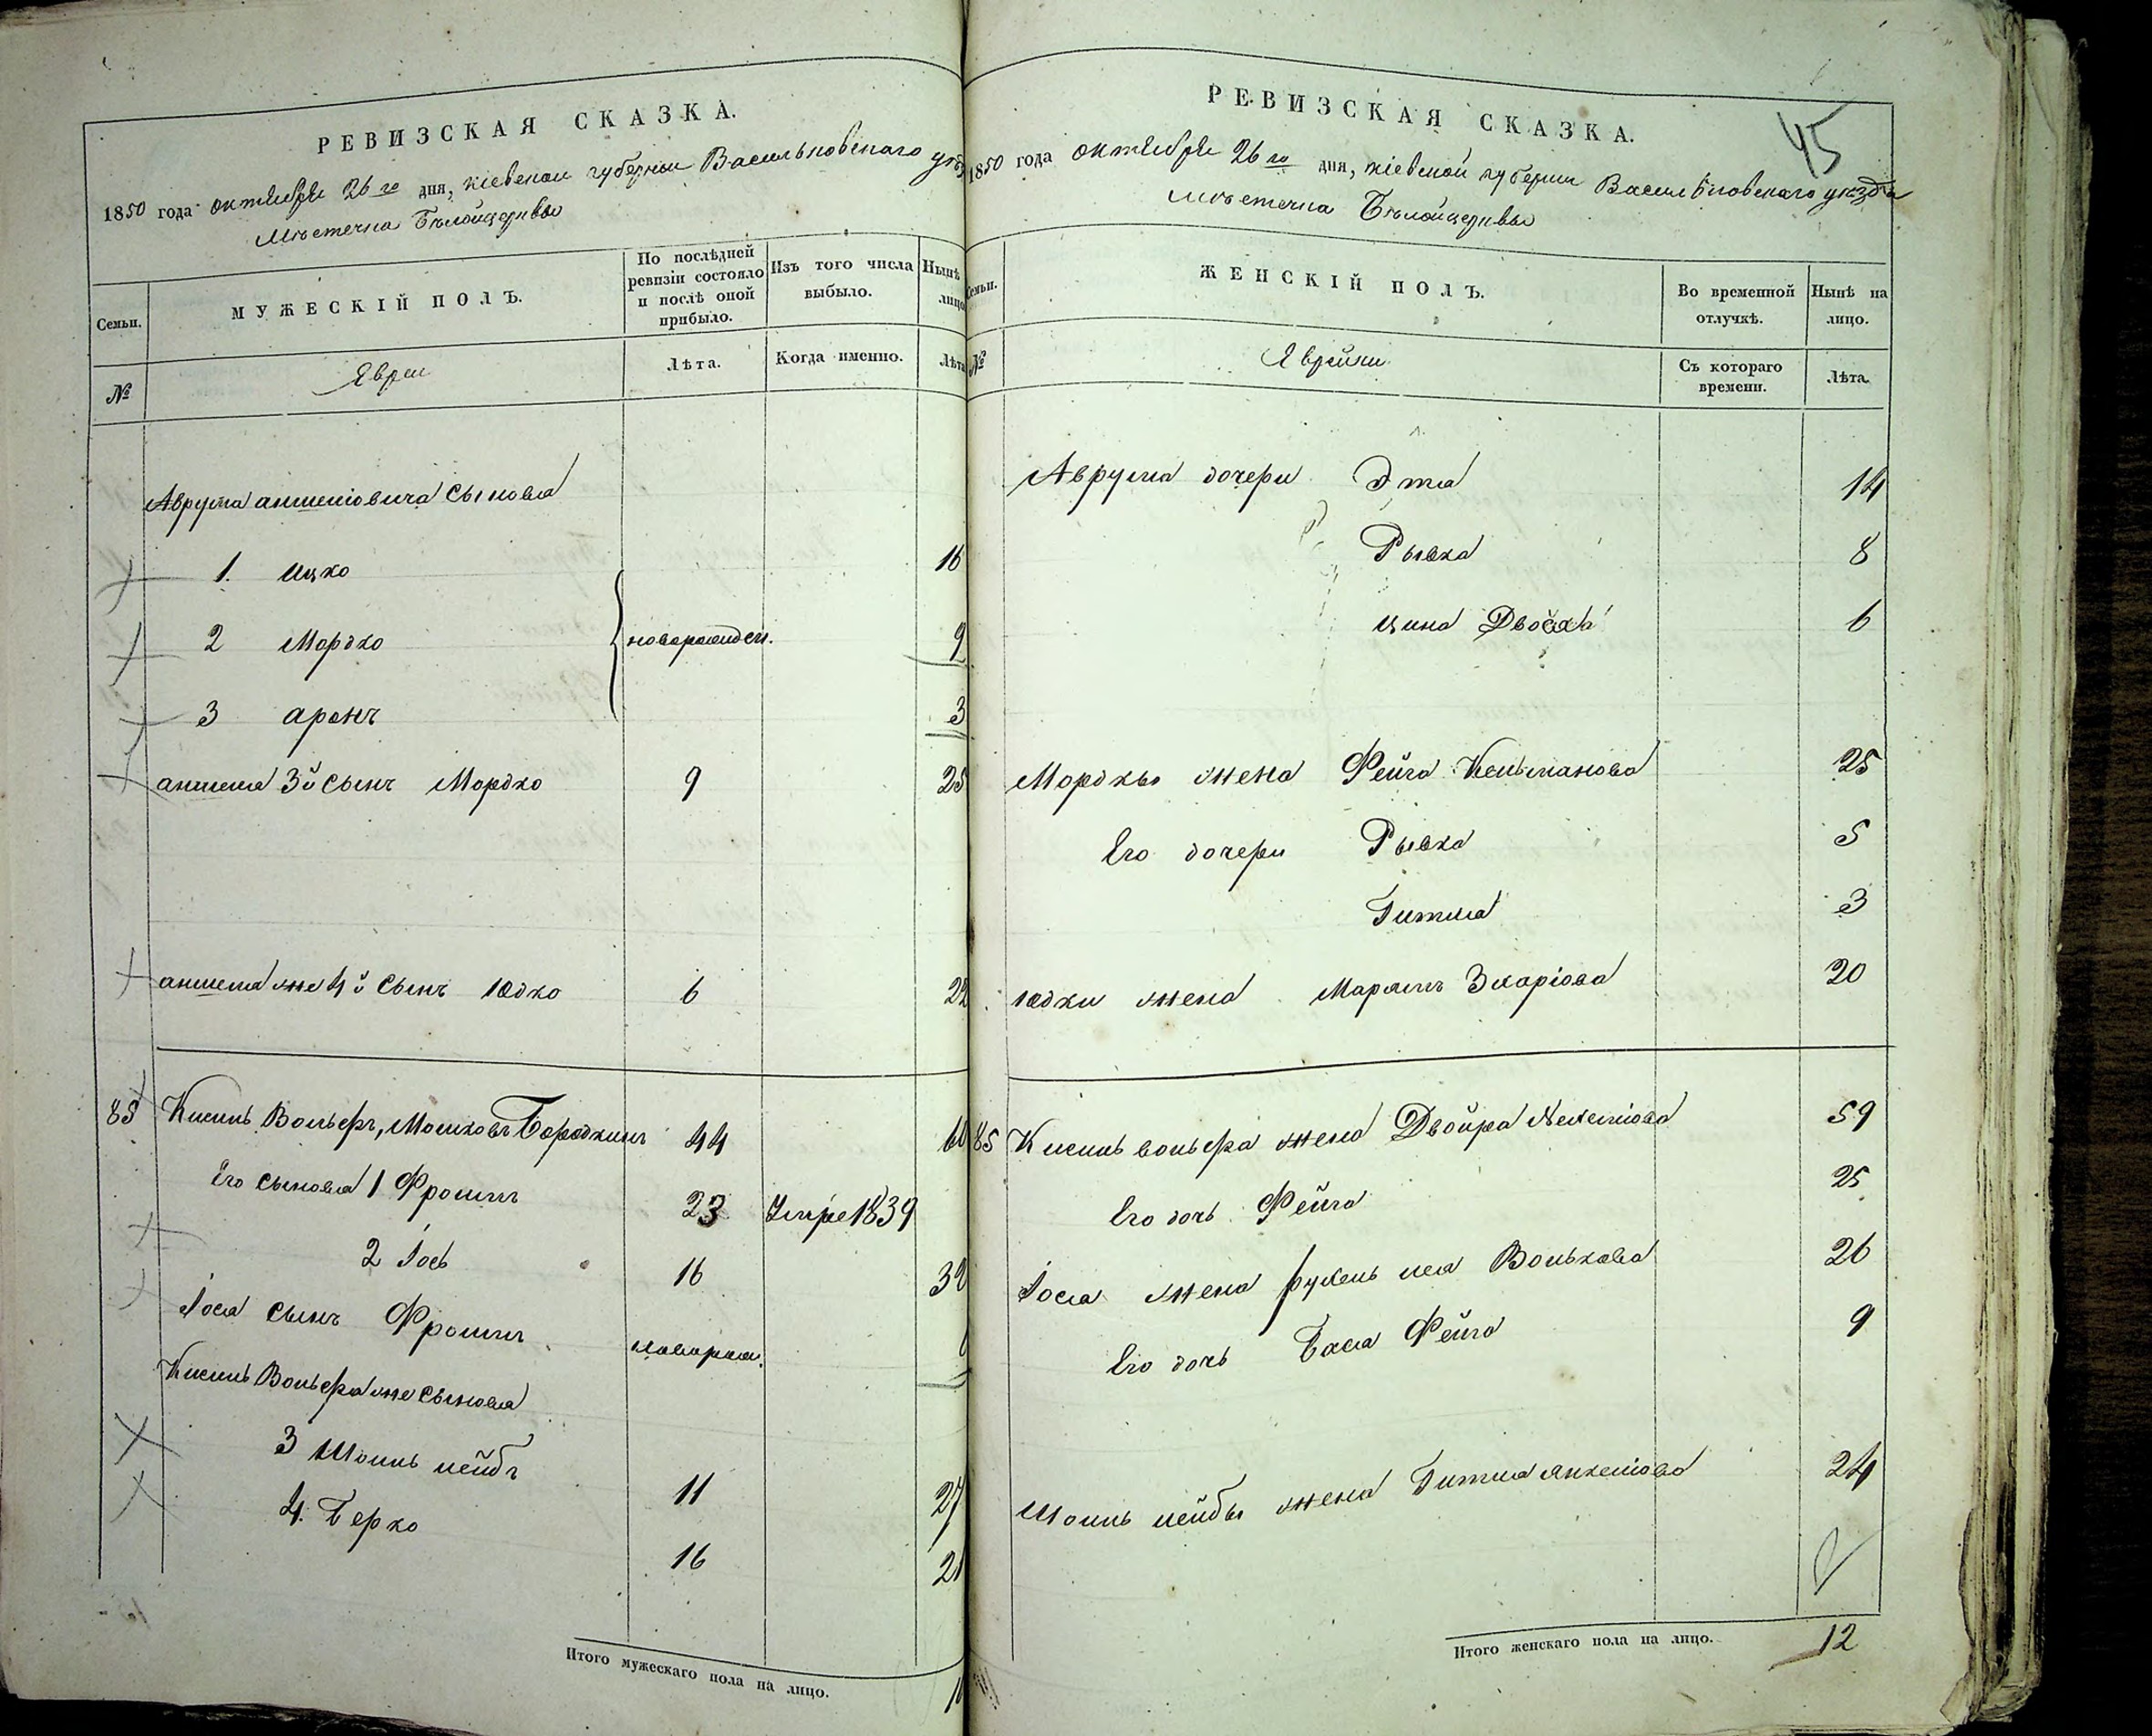 РЕВИЗСКАЯ СКАЗКА.
1850 года октября 26го дня, кіевской губерніи Васильковскаго уѣз
Мѣстечка Бѣлойцеркви
Семьи.
МУЖЕСКІЙ ПОЛЪ.
По послѣдней ревизіи состояло и послѣ оной прибыло.
Изъ того числа выбыло.
Нынѣ лицо
№
Евреи
Лѣта.
Когда именно.
Лѣта
Аврума аншелiовича Сыновья
1. Ицко 16
2 Мордко новорожден. 9
3 аронъ 3
аншеля 3й Сынъ Мордко 9 25
аншеля же 4й Сынъ Юдко 6 22
85 Кисиль Вольфъ, Мошковъ Бородкинъ 44 60
Его Сыновья 1 Фроимъ 23 Умре 1839
2 Іось 16 32
Іося Сынъ Фроимъ новорож.
Кисиль Вольфа же Сыновья
3 Шоиль лейбъ 11 27
4. Берко 16 21
Итого мужескаго пола на лицо.
45
РЕВИЗСКАЯ СКАЗКА.
1850 года октября 26го дня, кіевской губерніи Васильковскаго уѣзда
Мѣстечка Бѣлойцеркви
Семьи.
ЖЕНСКІЙ ПОЛЪ.
Во временной отлучкѣ.
Нынѣ на лицо.
№
Еврейки
Съ котораго времени.
Лѣта.
Аврума дочери Эта 14
Рывка 8
Цина Двойха 6
Мордки жена Фейга Кельманова 25
Его дочери Рывка 5
Гитля 3
Юдки жена Марьямъ 20
85 Кисиль вольфа жена Двойра 59
Его дочь Фейга 25
Іося жена рухель лея Волькова 26
Его дочь Бася Фейга 9
Шоиль лейбы жена Гитля янкелiова 24
Итого женскаго пола на лицо. 12